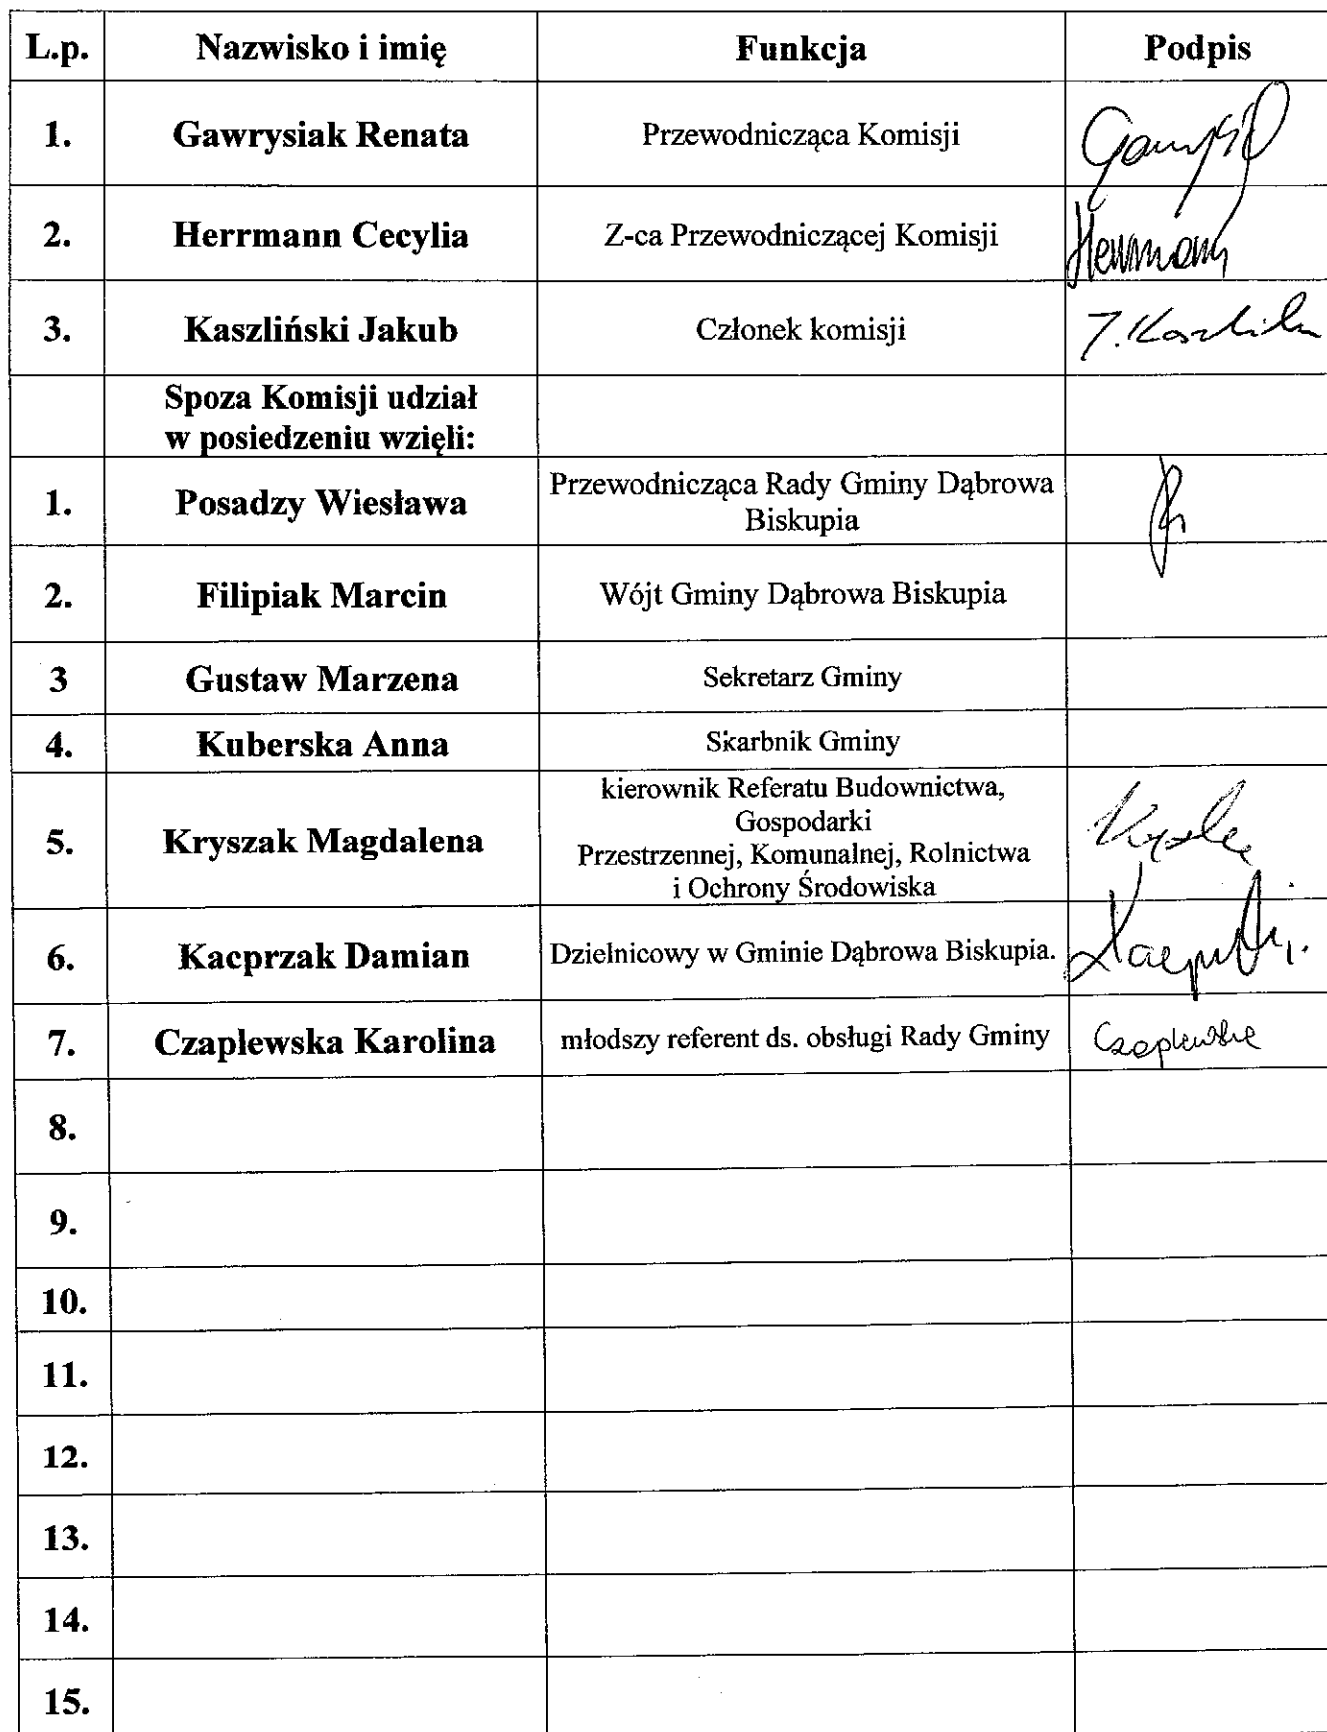 L.p. Nazwisko i imię Funkcja Podpis
1. Gawrysiak Renata Przewodnicząca Komisji
2. Herrmann Cecylia Z-ca Przewodniczącej Komisji Herrmann
3. Kaszliński Jakub Członek komisji
Spoza Komisji udział
w posiedzeniu wzięli:
1. Posadzy Wiesława Przewodnicząca Rady Gminy Dąbrowa
Biskupia
2. Filipiak Marcin Wójt Gminy Dąbrowa Biskupia
3 Gustaw Marzena Sekretarz Gminy
4. Kuberska Anna Skarbnik Gminy
5. Kryszak Magdalena kierownik Referatu Budownictwa,
Gospodarki
Przestrzennej, Komunalnej, Rolnictwa
i Ochrony Środowiska
6. Kacprzak Damian Dzielnicowy w Gminie Dąbrowa Biskupia.
7. Czaplewska Karolina młodszy referent ds. obsługi Rady Gminy Czaplewska
8.
9.
10.
11.
12.
13.
14.
15.